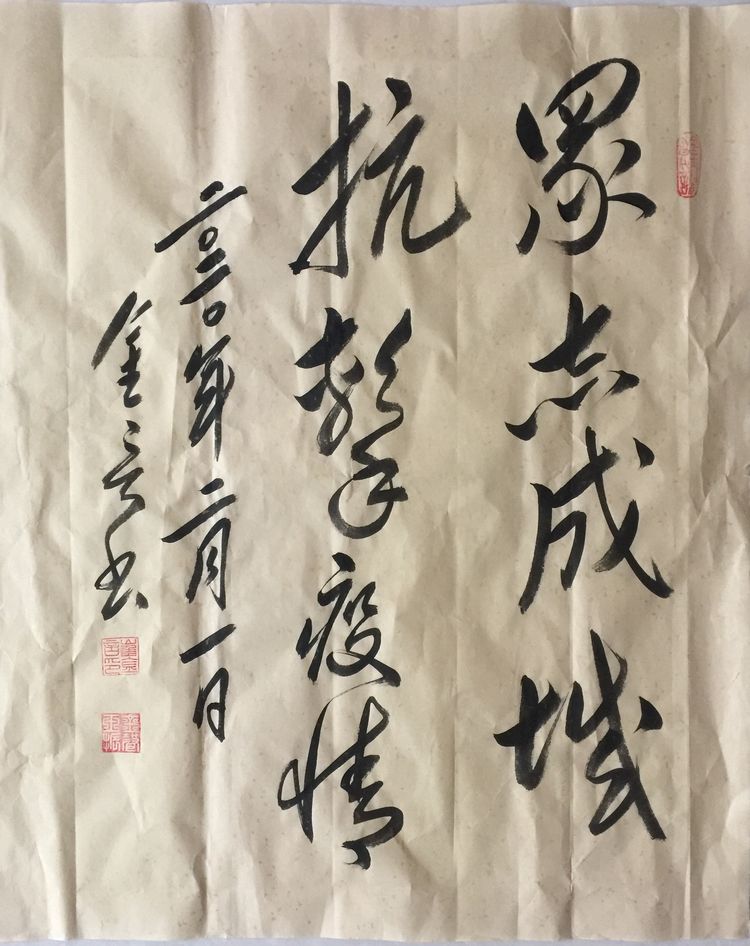 眾志成城
抗擊疫情
二〇二〇年二月一日
金言书